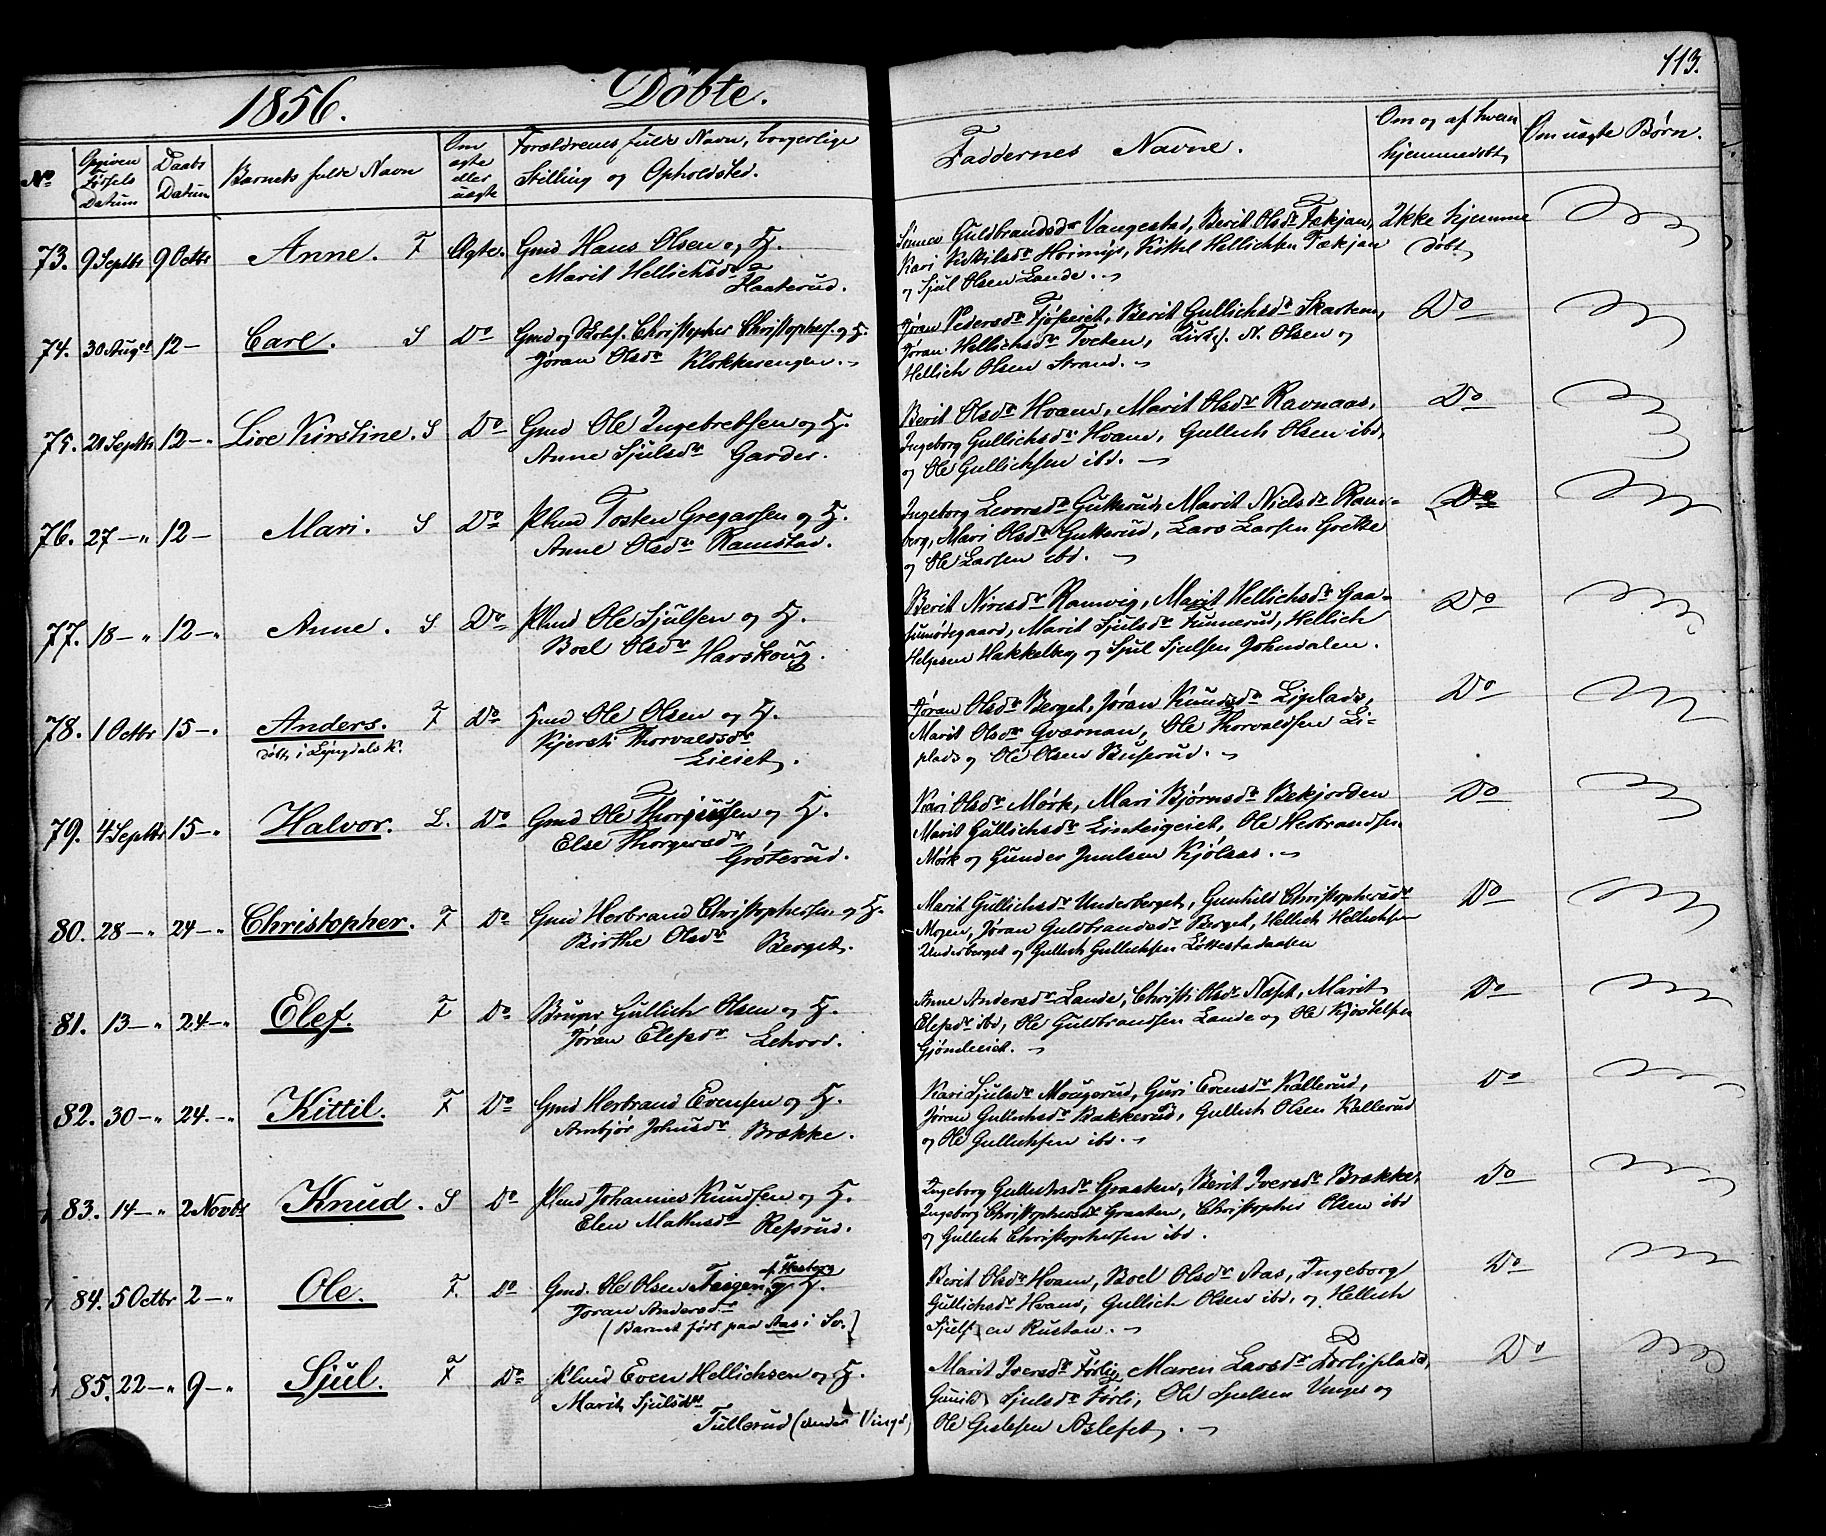 113.
1856. Døbte.
No
Opgiven Fødsels Datum
Daabs Datum
Barnets fulde Navn
Om ægte eller uægte
Forældrenes fulde Navn, borgerlige
Stilling og Opholdsted.
Faddernes Navne.
Om og af hvem
hjemmedøbt
Om uægte Børn.
73. 9 Septbr 9 Octbr Anne. F Ægte. Gmd Hans Olsen og H.
Marit Hellichsdr
Haaterud.
Guldbrandsdr Vangestad, Berit Olsdr Fækjan,
Kari Kittilsdr Kittel Hellichsen Fækjan
og Sjul Olsen Lande.
Ikke hjemme
døbt
74. 30 August 12 – Carl. S Do Gmd og Christopher Christophers. og H.
Jøran Olsdr Klokkerengen.
Jøran Pedersdr Berit Gullichsdr
Jøran Hellichsdr Tveten, N. Olsen og
Hellich Olsen Strand.
Do
75. 21 Septbr 12 – " Live Kirstine. S Do Gmd Ole Ingebretsen og H.
Anne Sjulsdr Gardes.
Berit Olsdr Hvam, Marit Olsdr Ravnaas,
Ingeborg Gullichsdr Hvam, Gullich Olsen ibd,
og Ole Gullichsen ibd.
Do
76. 27 – " 12 – Mari. S Do Plmd Tosten Gregarsen og H.
Anne Olsdr Ramstad.
Ingeborg Gutterud, Marit Nielsdr Ram-
berg, Mari Olsdr Gutterud, Lars Larsen Grette
og Ole Larsen ibd.
Do
77. 18 – " 12 – " Anne. S Do Plmd Ole Sjulsen og H.
Boel Olsdr Harskoug.
Berit Ramvig, Marit Hellichsdr Gaa-
Marit Sjulsdr Hellich
Helgesen Hakkelberg og Sjul Sjulsen Johndalen.
Do
78. 1 Octbr 15 – " Anders. F Do Gmd Ole Olsen og H.
døbt i Lyngdals K.
Kjersti Thorvaldsdr
Lieiet.
Jøran Olsdr Berget, Jøran Knudsdr Liplads,
Marit Olsdr Qværnan, Ole Thorvaldsen Li-
plads og Ole Olsen Buserud.
Do
79. 4 Septbr 15 – " Halvor. L. Do Gmd Ole og H.
Else Thorgersdr
Grøterud.
Kari Olsdr Mørk, Mari Bjørnsdr Bekjorden
Marit Gullichsdr Linteigeiet, Ole Herbrandsen
Mørk og Gunder Juulsen Kjølaas.
Do
80. 28 – " 24 – " Christopher. F Do Gmd Herbrand Christophersen og H.
Birthe Olsdr Berget.
Marit Gullichsdr Underberget, Gunhild Christophersdr
Moen, Jøran Guldbrandsdr Berget, Hellich Hellichsen
Underberget og Gullich Gullichsen
Do
81. 13 – " 24 – " Elef. F Do Bruger Gullich Olsen og H.
Jøran Elefsdr Lehovd.
Anne Andersdr Lande, Christi Olsdr Marit
Elefsdr ibd, Ole Guldbrandsen Lande og Ole
Do
82. 30 – " 24. – " Kittil. F Do Gmd Herbrand Evensen og H.
Arnbjør Johnsdr Brække.
Kari Sjulsdr Mougerud, Guri Evensdr Kallerud,
Jøran Gullichsdr Bakkerud, Gullich Olsen Kallerud
og Ole Gullichsen ibd.
Do
83. 14 – " 2 Novbr Knud. S Do Plmd Johannes Knudsen og H.
Elen Mathisdr
Ingeborg Gullichsdr Graaten, Berit Iversdr Brække,
Ingeborg Christophersdr Graaten, Christopher Olsen ibd
og Gullich Christophersen ibd.
Do
84. 5 Octbr 2 – " Ole. F. Do Gmd. Ole Olsen og H.
Jøran Andersdr
(Barnet født paa Aas i Sv.)
Berit Olsdr Hvam, Boel Olsdr Aas, Ingeborg
Gullichsdr Hvam, Gullich Olsen ibd, og Hellich
Sjulsen Rustan.
Do
85. 22 – " 9 – " Sjul. F Do Plmd Even Hellichsen og H.
Marit Sjulsdr
Tullerud (under
Marit Iversdr Førlie, Maren Larsdr Førliplads,
Gunild Sjulsdr Førli, Ole Sjulsen og
Ole Gislesen
Do